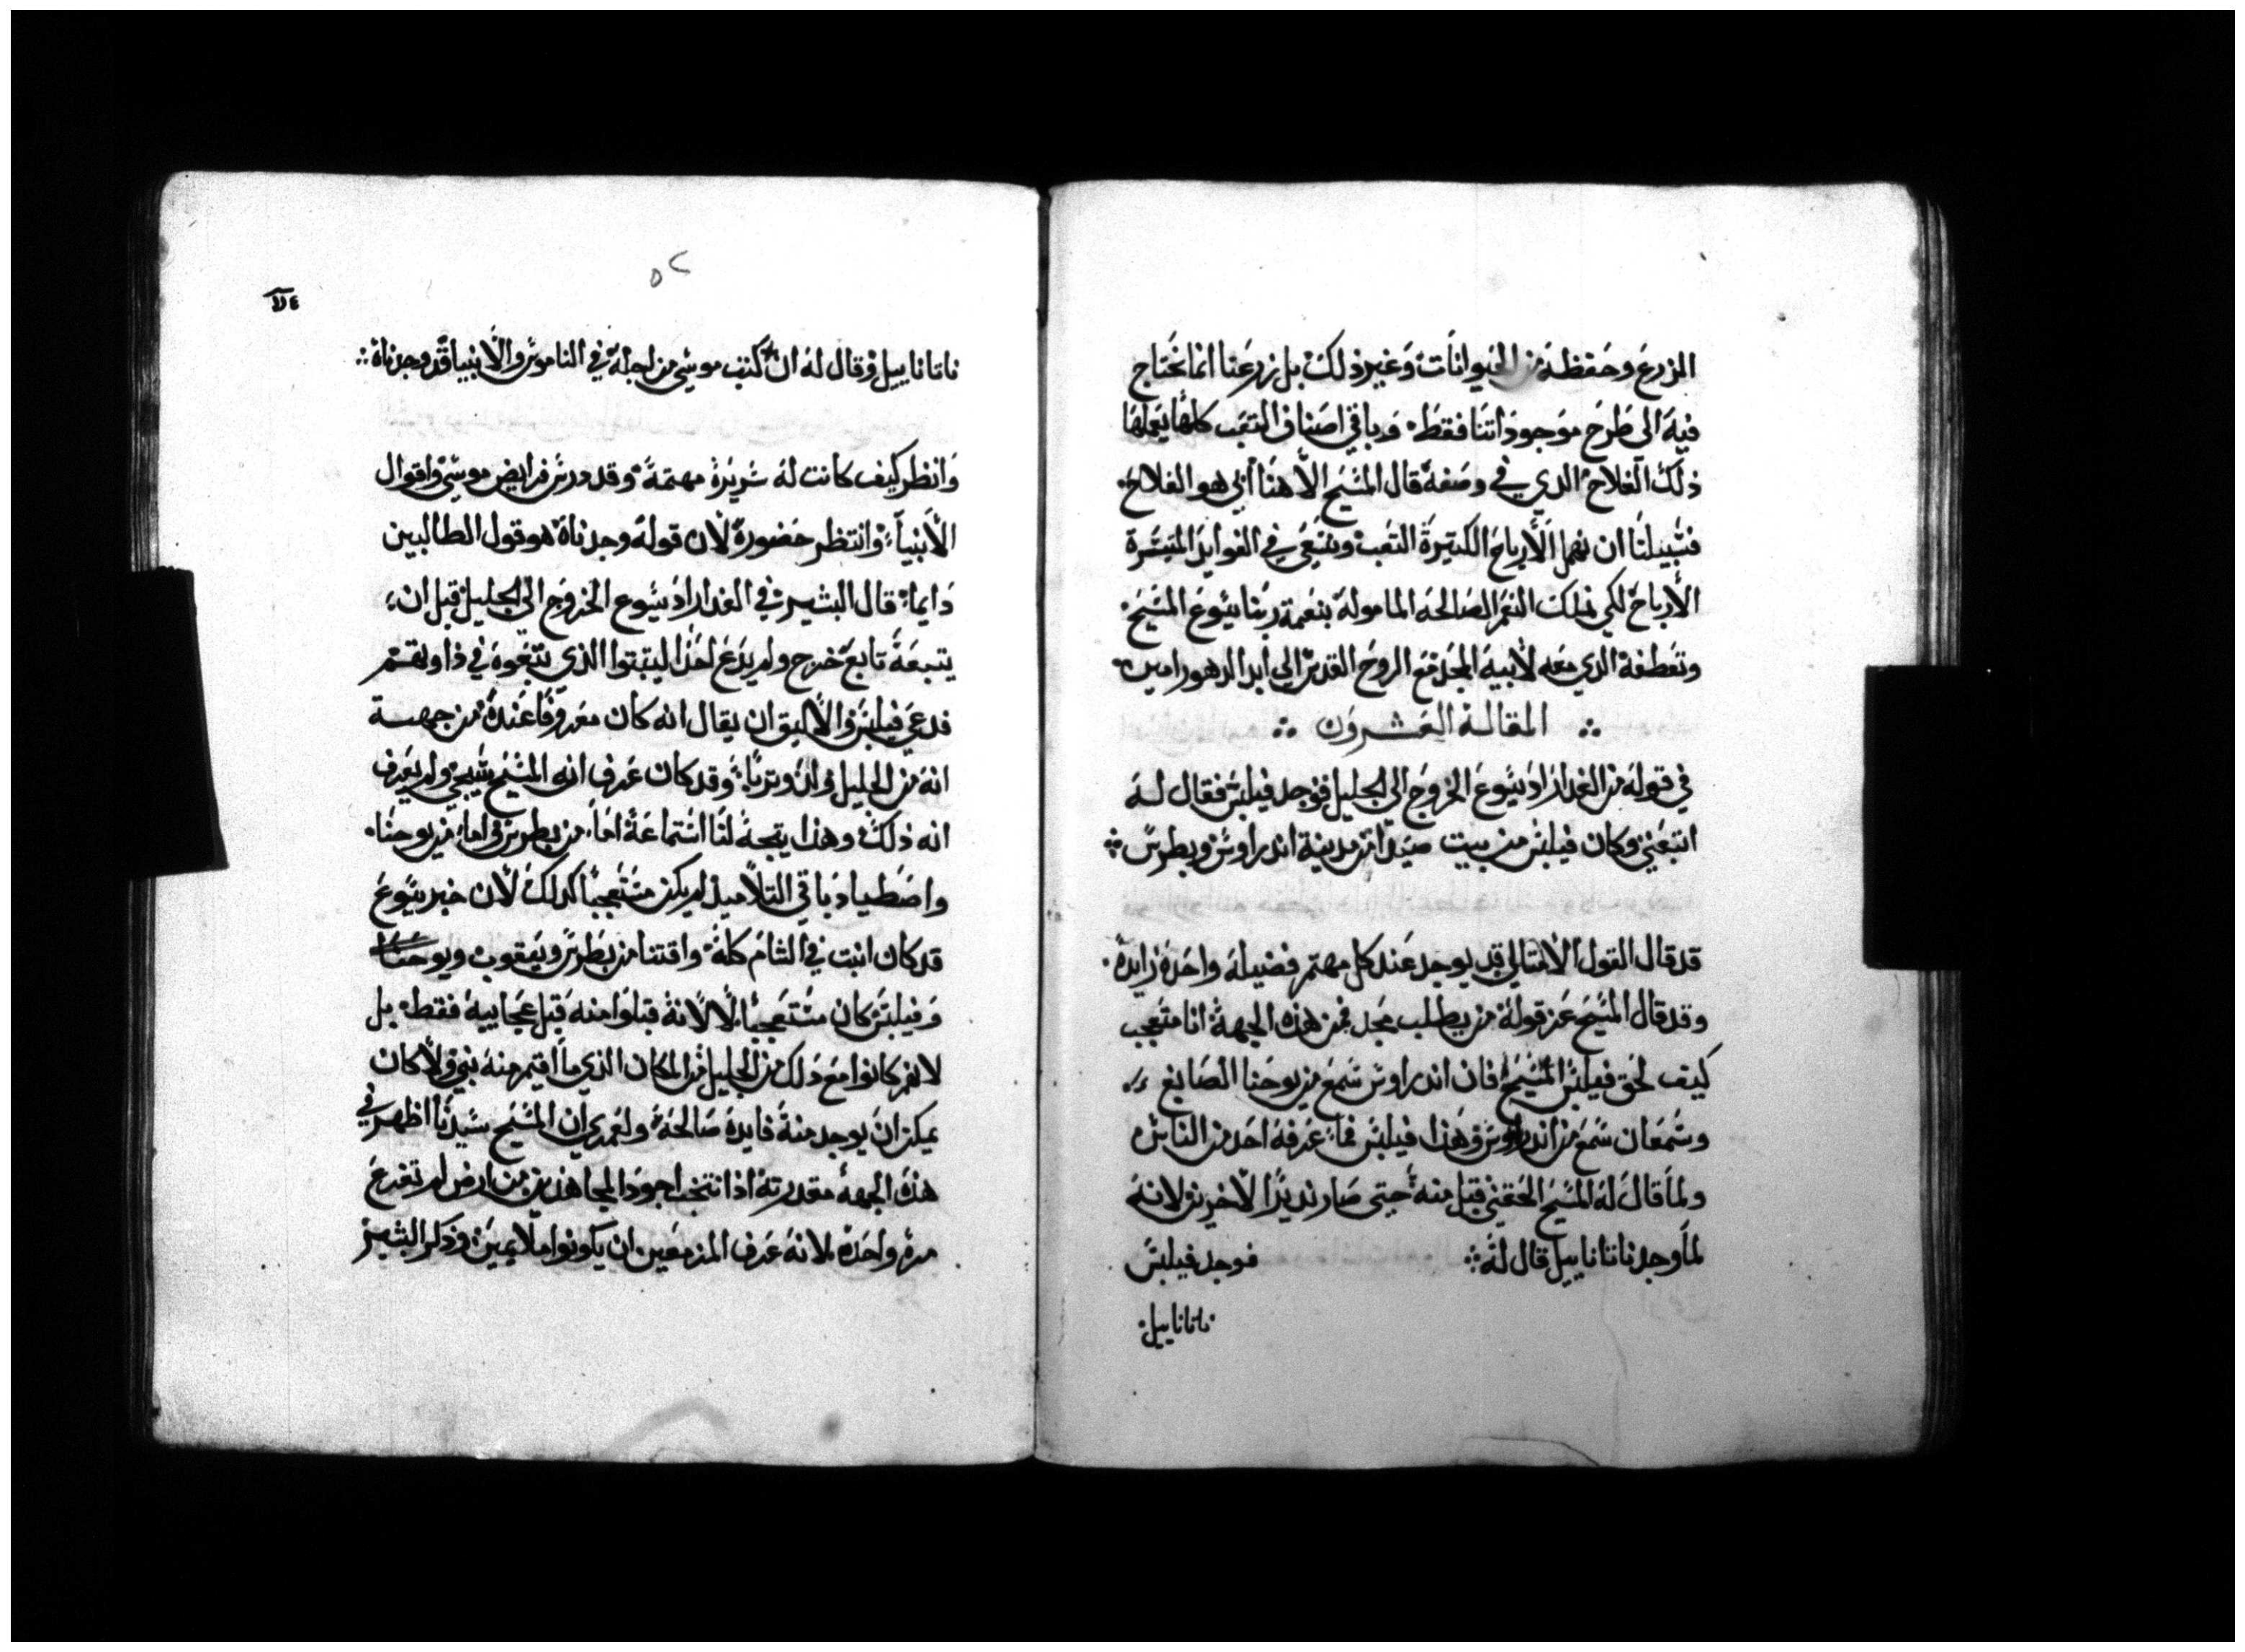 الزرع وحفظه من الحيوانات وغير ذلك بل زرعنا انما نحتاج
فيه الى طرح موجوداتنا فقط. وباقي اصناف التعب كلها يعملها
ذلك الفلاح الذي في وصفه قال المسيح الاهنا أبي هو الفلاح.
فسبيلنا ان نهمل الأرباح الكتيرة التعب ونسعى في الفوايد المتيسرة
الأرباح لكي نملك النعم الصالحه الماموله بنعمة ربنا يسوع المسيح
وتعطفه الدي معه لأبيه المجد مع الروح القدس الي ابد الدهور امين
المقالة العشرون
في قوله من الغد اراد يسوع الخروج الي الجليل فوجد فيلبس فقال له
اتبعني وكان فيلبس من بيت صيدا من مدينة اندراوس وبطرس
قد قال القول الامتالي قد يوجد عند كل مهتم فضيلة واحدة زايدة.
وقد قال المسيح عز قوله من يطلب يجد فمن هذه الجهة انا متعجب
كيف لحق فيلبس المسيح فان اندراوس سمع من يوحنا الصابغ
وسمعان سمع من اندراوس وهذا فيلبس فما عرفه احد من الناس
ولما قال له المسيح الحقني قبل منه حتى صار نديرًا لاخرين لانه
لما وجد ناتاناييل قال له فوجد فيلبس
ناتاناييل
٥٢
ناتاناييل وقال له ان كتب موسى من اجله في الناموس والانبيا قد وجدناه
وانظر كيف كانت له سريرة مهتمة وقد درس فرايض موسى واقوال
الأنبيآ وانتظر حضوره لأن قوله وجدناه هو قول الطالبين
دايما قال البشير في الغد اراد يسوع الخروج الى الجليل قبل ان
يتبعه تابع خرج ولم يدع احدًا ليتبتوا الذي يتبعوه في
فدعى فيلبس والأليق ان يقال انه كان معروفًا عنده من جهة
انه من الجليل ولد وتربا وقد كان عرف انه المسيح سيجي ولم يعرف
انه ذلك وهذا يتجه لنا استماعه اما من بطرس واما من يوحنا.
واصطياد باقي التلاميذ لم يكن مستعجبًا كدلك لأن خبر يسوع
قد كان انبت في الشام كله واقتنا من بطرس ويعقوب ويوحنا
وفيلبس كان مستعجبًا لا لانه قبلوا منه قبل عجايبه فقط بل
لانهم كانوا مع دلك من الجليل من المكان الذي ما اقيم منه نبي ولا كان
يمكن ان يوجد منه فايدة صالحة ولعمري ان المسيح سيدنا اظهر في
هذه الجهة مقدرته اذ انتخب اجود المجاهدين من ارض لم تفرع
مرة واحدة لانه عرف المزمعين ان يكونوا ملايمين وذكر البشير